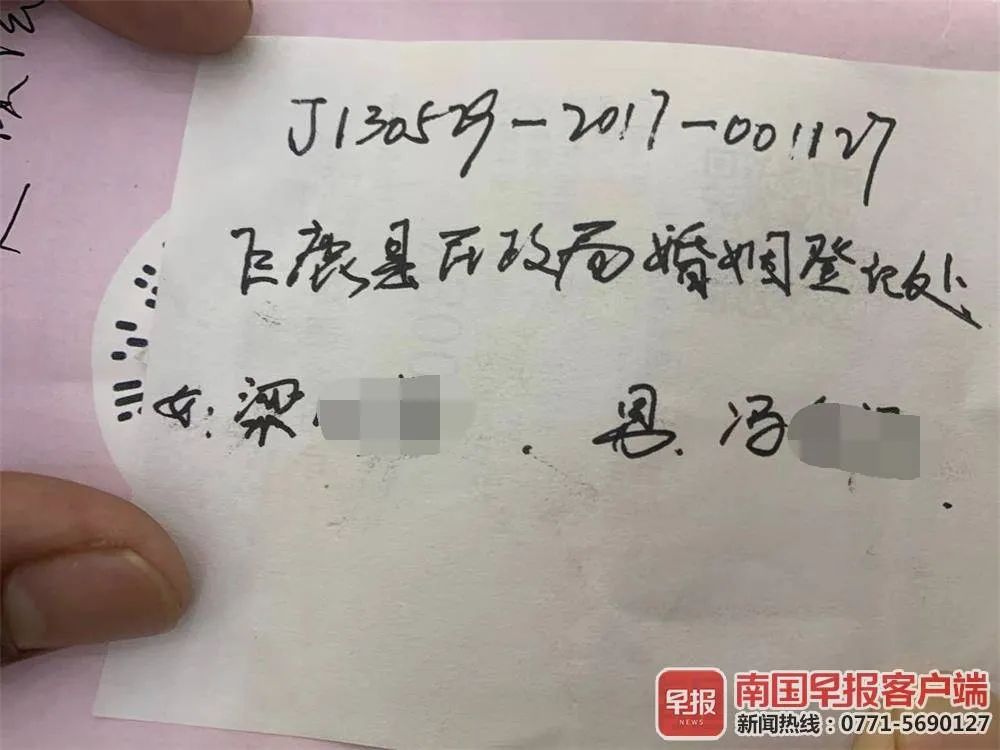 J130529-2017-001127
巨鹿县民政局婚姻登记处
女:梁 . 男.冯 .
早报
NEWS
南国早报客户端
新闻热线:0771-5690127